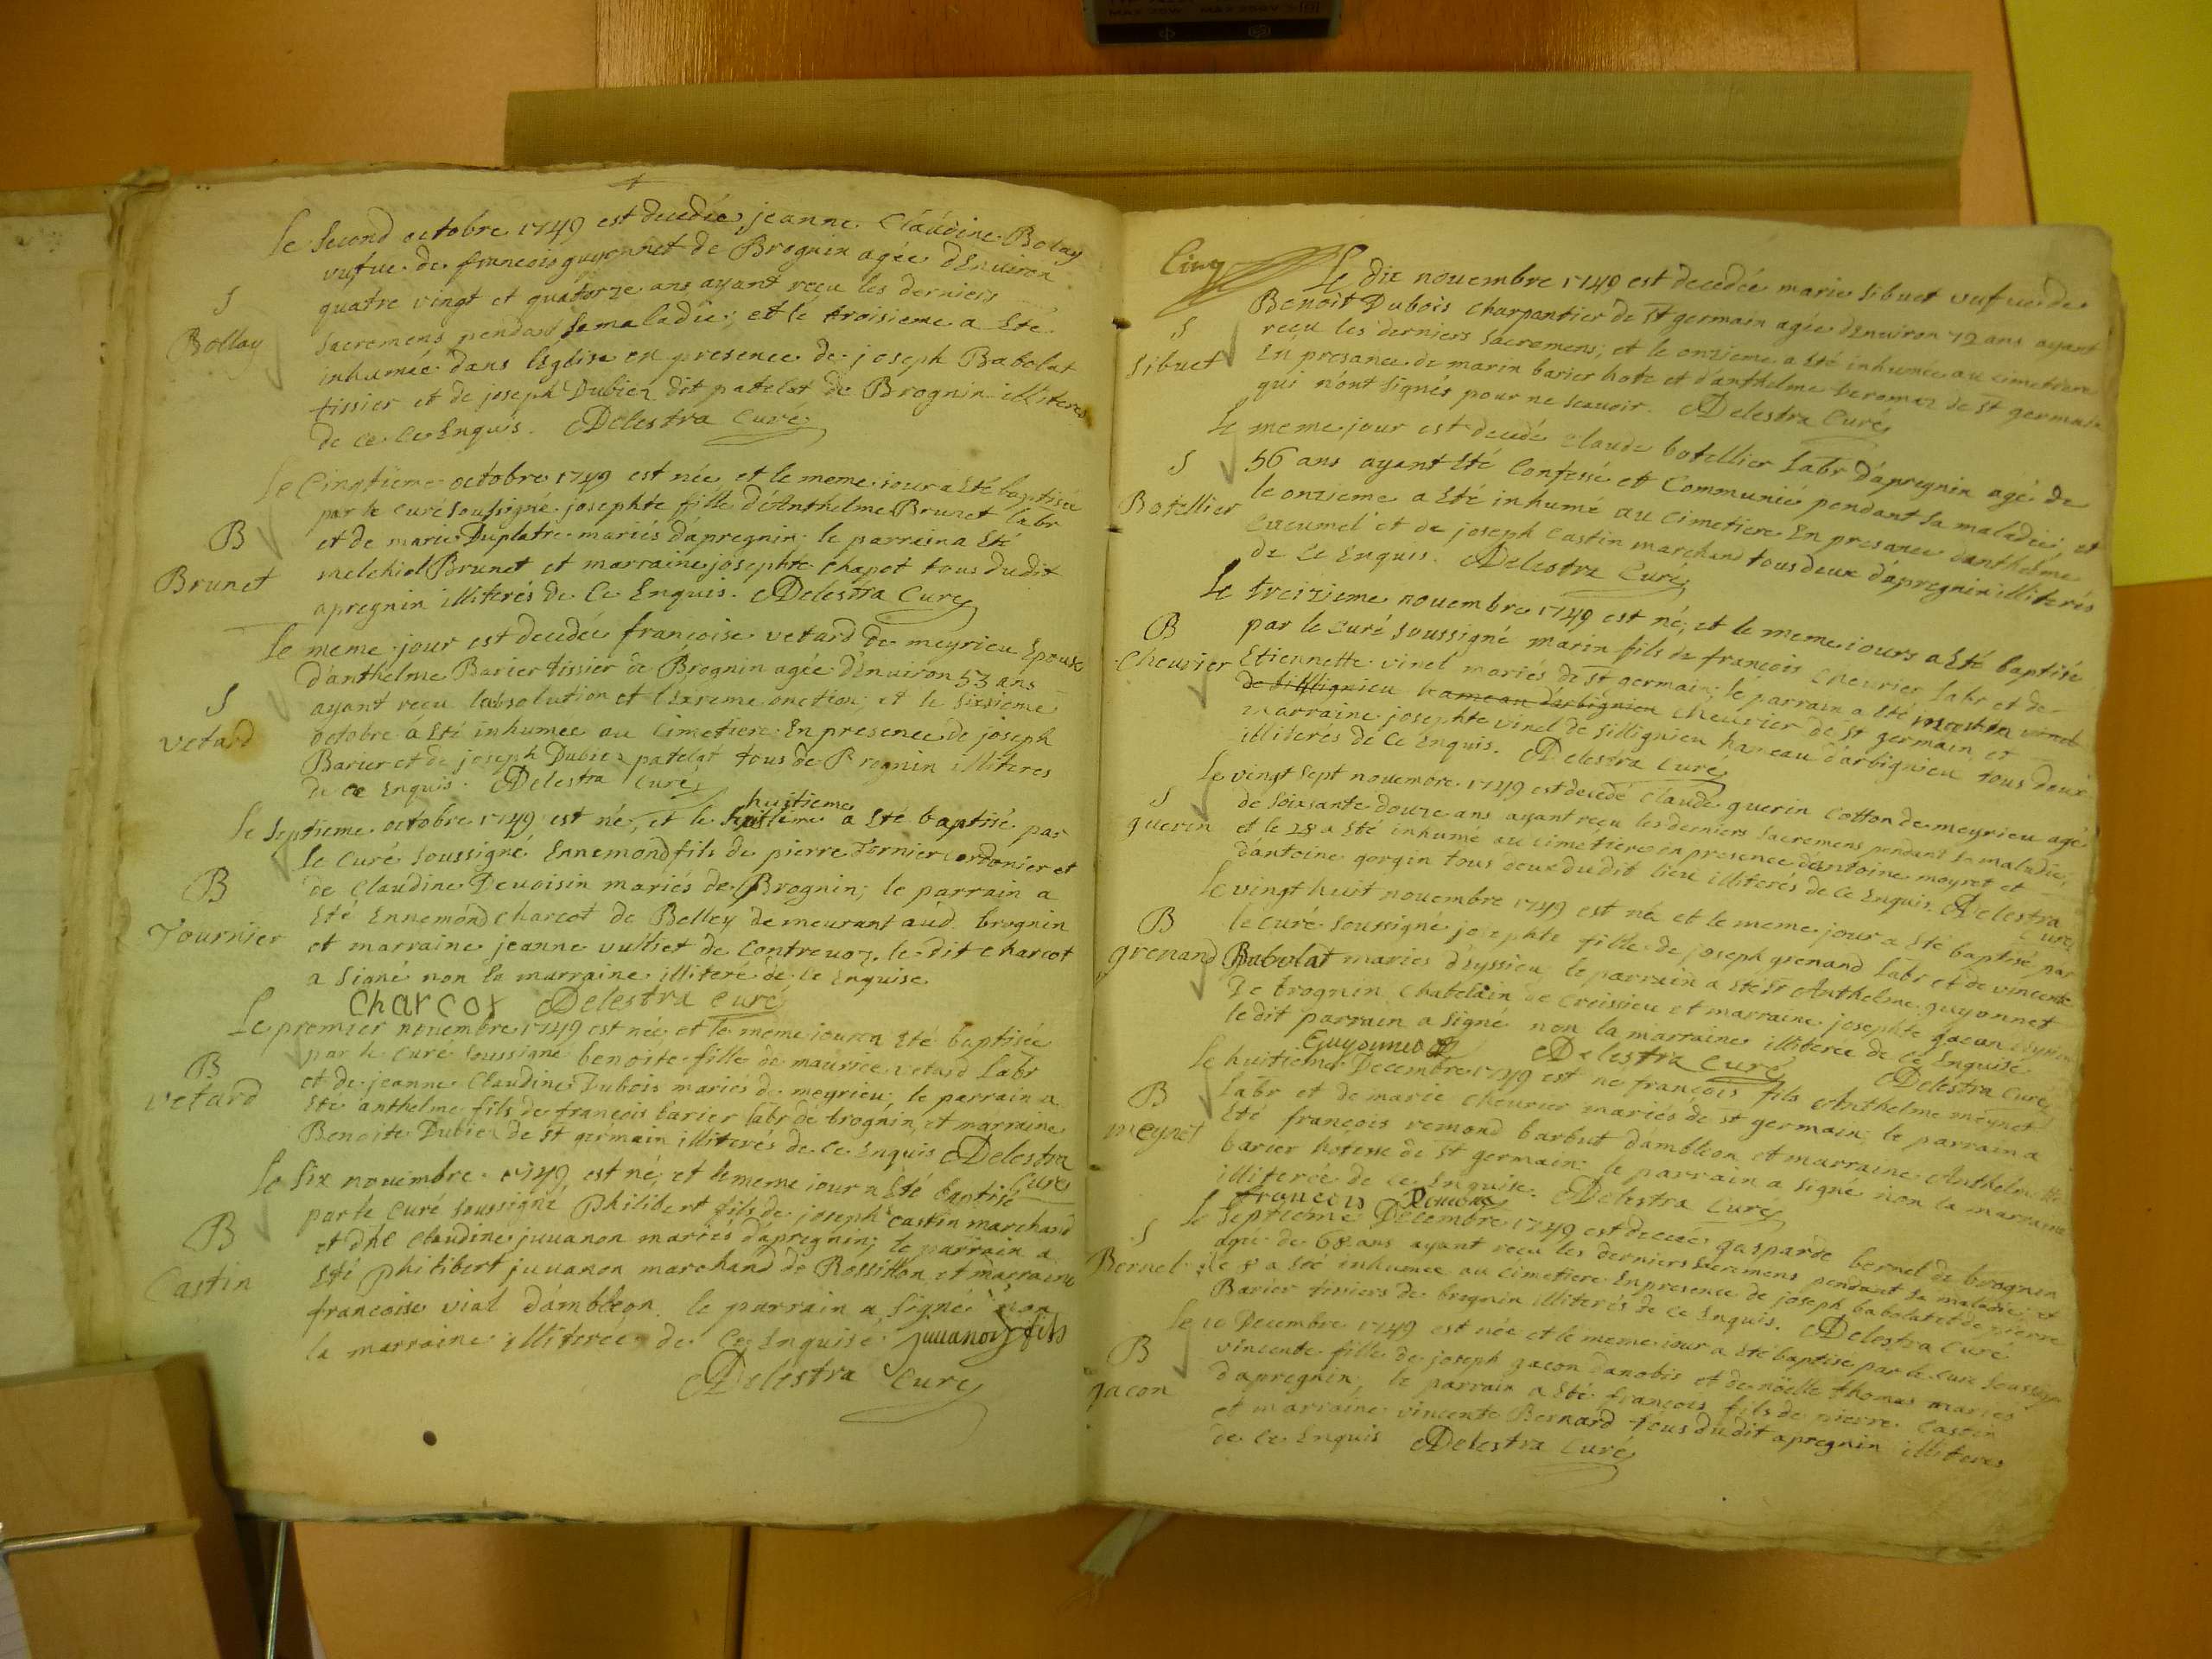 Le second octobre 1749 est decedée jeanne Claudine Bolay
vufue de francois guyonnet de Brognin agée dEnuiron
S
Bollay
quatre vingt et quatorze ans ayant reçu les derniers
sacremens pendant sa maladie; et le troisieme a Eté
inhumée dans l'Eglise en presence de joseph Babolat
tissier et de joseph Dubiez dit patelat de Brognin illiteres
de ce Ce Enquis. Delestra Curé
Le Cinqtieme octobre 1749 est née et le meme iour a Eté baptisée
par le curé soussigné josephte fille d'Anthelme Brunet labr
B
Brunet
et de marie Duplatre mariés d'apregnin. le parrain a Eté
melchiol Brunet et marraine josephte Chapot tous dudit
apregnin illiterés de Ce Enquis. Delestra Curé
Le meme jour est decedée francoise vetard de meyrieu Epouse
d'anthelme Barier tissier de Brognin agée d'Enuiron 53 ans
S
vetard
ayant reçu l'absolution et l'Extreme onction; et le sixsieme
octobre a Eté inhumee au Cimetiere En presence de joseph
Barier et de joseph Dubiez patelat tous de Brognin illiteres
de ce Enquis. Delestra Curé
huitieme
Le septieme octobre 1749 est né, et le septieme a Eté baptisé par
le curé soussigné Ennemond fils de pierre Fornier cordonier et
B
Fournier
de Claudine Deuoisin mariés de Brognin; le parrain a
Eté Ennemond charcot de Belley demeurant aud. brognin
et marraine jeanne vulliet de Contreuoz. le dit charcot
a signé non la marraine illiteré de Ce Enquise
Charcot Delestra curé
Le premier nouembre 1749 est née et le meme iour a Eté baptisée
B
vetard
par le curé soussigné benoite fille de maurice vetard labr
et de jeanne Claudine Dubois mariés de meyrieu; le parrain a
Eté anthelme fils de francois barier labr de brognin, et marraine
Benoite Dubiez de St germain illiterés de Ce Enquis Delestra
Curé
Le six novembre 1749 est né, et le meme iour a Eté baptisé
par le curé soussigné Philibert fils de joseph castin marchand
B
Castin
et dhe Claudine juuanon mariés d'apregnin; le parrain a
Eté Philibert juuanon marchand de Rossillon et marraine
francoise vial d'ambleon. le parrain a signé non
la marraine illiterée de Ce Enquise. juuanon fils
Delestra Curé
Cinq
Le dix nouembre 1749 est decedée marie sibuet vufue de
S
Sibuet
Benoit Dubois Charpantier de St germain agée d'Enuiron 72 ans ayant
reçu les derniers sacremens; et le onzieme a Eté inhumée au cimetiere
En presance de marin barier hote et d'anthelme de St germain
qui n'ont signés pour ne scauoir. Delestra Curé
Le meme jour est decedé claude botellier labr d'apregnin agé de
S
Botellier
56 ans ayant Eté Confessé et Communié pendant sa maladie; et
le onzieme a Eté inhumé au cimetiere En presance danthelme
cucumel et de joseph Castin marchand tous deux d'apregnin illiterés
de Ce Enquis. Delestra Curé
Le treizieme nouembre 1749 est né; et le meme iours a Eté baptisé
B
Cheurier
par le curé soussigné marin fils de francois Cheurier labr et de
Etiennette vinel mariés de St germain; le parrain a Eté
de sillignieu hameau d'arbignieu Cheurier de St germain et
marraine josephte vinel de sillignieu hameau d'arbignieu tous deux
illiterés de Ce Enquis. Delestra Curé
Le vingt sept nouembre 1749 est decedé Claude guerin Cotton de meyrieu agé
S
guerin
de soixsante douze ans ayant reçu les derniers sacremens pendant sa maladie;
et le 28 a Eté inhumé au cimetiere en presence dantoine moyret et
dantoine gorgin tous deux dudit lieu illiterés de Ce Enquis. Delestra
Curé
Le vingt huit nouembre 1749 est née et le meme jour a Eté baptisé par
B
grenand
le curé soussigné josephte fille de joseph grenand labr et de vincente
Babolat mariés d'eyssieu, le parrain a Eté Sr Anthelme guyonnet
De brognin Chatelain de Creissieu et marraine josephte gacon d'eyssieu
le dit parrain a signé non la marraine illiterée de Ce Enquise
Guyonnet Delestra Curé Delestra Curé
Le huitieme Decembre 1749 est né francois fils Anthelme meynet
B
meynet
labr et de marie Cheurier mariés de St germain; le parrain a
Eté francois remond barbut dambleon et marraine Anthelmette
barier hotesse de St germain; le parrain a signé non la marraine
illiterée de Ce Enquise. Delestra Curé
francois Remond
Le septieme Decembre 1749 est decedé gasparde bernel de brognin
S
Bernel
agée de 68 ans ayant reçu les derniers sacremens pendant sa maladie; et
le 8 a Eté inhumée au cimetiere En presence de joseph babolat et de pierre
Barier tissiers de brognin illiterés de Ce Enquis. Delestra Curé
Le 10 Decembre 1749 est née et le meme iour a Eté baptisé par le curé soussigné
B
gacon
vincente fille de joseph gacon danobis et de nöelle thomas mariés
d'apregnin; le parrain a Eté francois fils de pierre Castin
et marraine vincente Bernard tous dudit apregnin illiteres
de Ce Enquis Delestra Curé